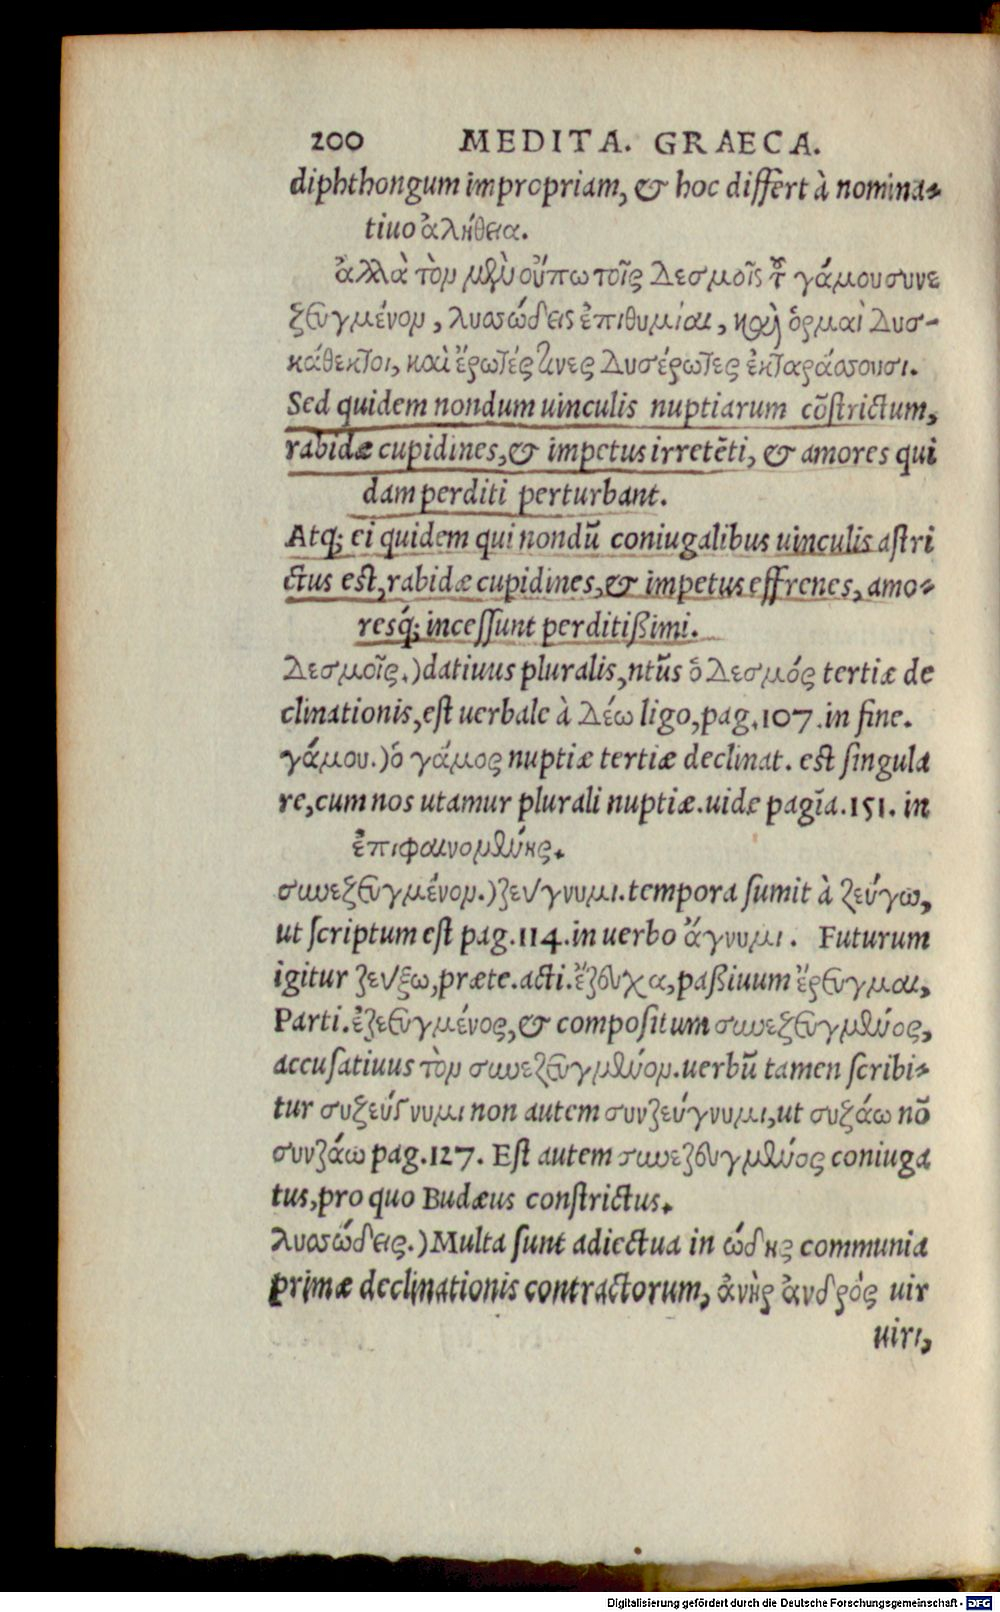 200 MEDITA. GRAECA.
diphthongum impropriam, & hoc differt à nomina-
tiuo ἀλήθεια.
ἀλλὰ τὸν μὲν οὔπω τοῖς δεσμοῖς τ γάμου συνε
ζευγμένον, λυσσώδεις ἐπιθυμίαι, καὶ ὁρμαὶ δυσ-
κάθεκτοι, καὶ ἔρωτές τινες δυσέρωτες ἐκταράσσουσι.
Sed quidem nondum uinculis nuptiarum cõstrictum,
rabidæ cupidines, & impetus irretẽti, & amores qui
dam perditi perturbant.
Atq; ei quidem qui nondũ coniugalibus uinculis astri
ctus est, rabidæ cupidines, & impetus effrenes, amo-
resq́; incessunt perditißimi.
δεσμοῖς.) datiuus pluralis, ntũs ὁ δεσμός tertiæ de
clinationis, est uerbale à δέω ligo, pag. 107. in fine.
γάμου.) ὁ γάμος nuptiæ tertiæ declinat. est singula
re, cum nos utamur plurali nuptiæ. uide pagĩa. 151. in
ἐπιφαινομένης.
συνεζευγμένον.) ζεύγνυμι. tempora sumit à ζεύγω,
ut scriptum est pag. 114. in uerbo ἄγνυμι. Futurum
igitur ζεύξω, præte. acti. ἔζευχα, paßiuum ἔρευγμαι,
Parti. ἐζευγμένος, & compositum συνεζευγμένος,
accusatiuus τὸν συνεζευγμένον. uerbũ tamen scribi-
tur συζεύγνυμι non autem συνζεύγνυμι, ut συζάω nõ
συνζάω pag. 127. Est autem συνεζευγμένος coniuga
tus, pro quo Budæus constrictus.
λυσσώδεις.) Multa sunt adiectiua in ώδης communia
primæ declinationis contractorum, ἀνὴρ ἀνδρός uir
uiri,
Digitalisierung gefördert durch die Deutsche Forschungsgemeinschaft - DFG